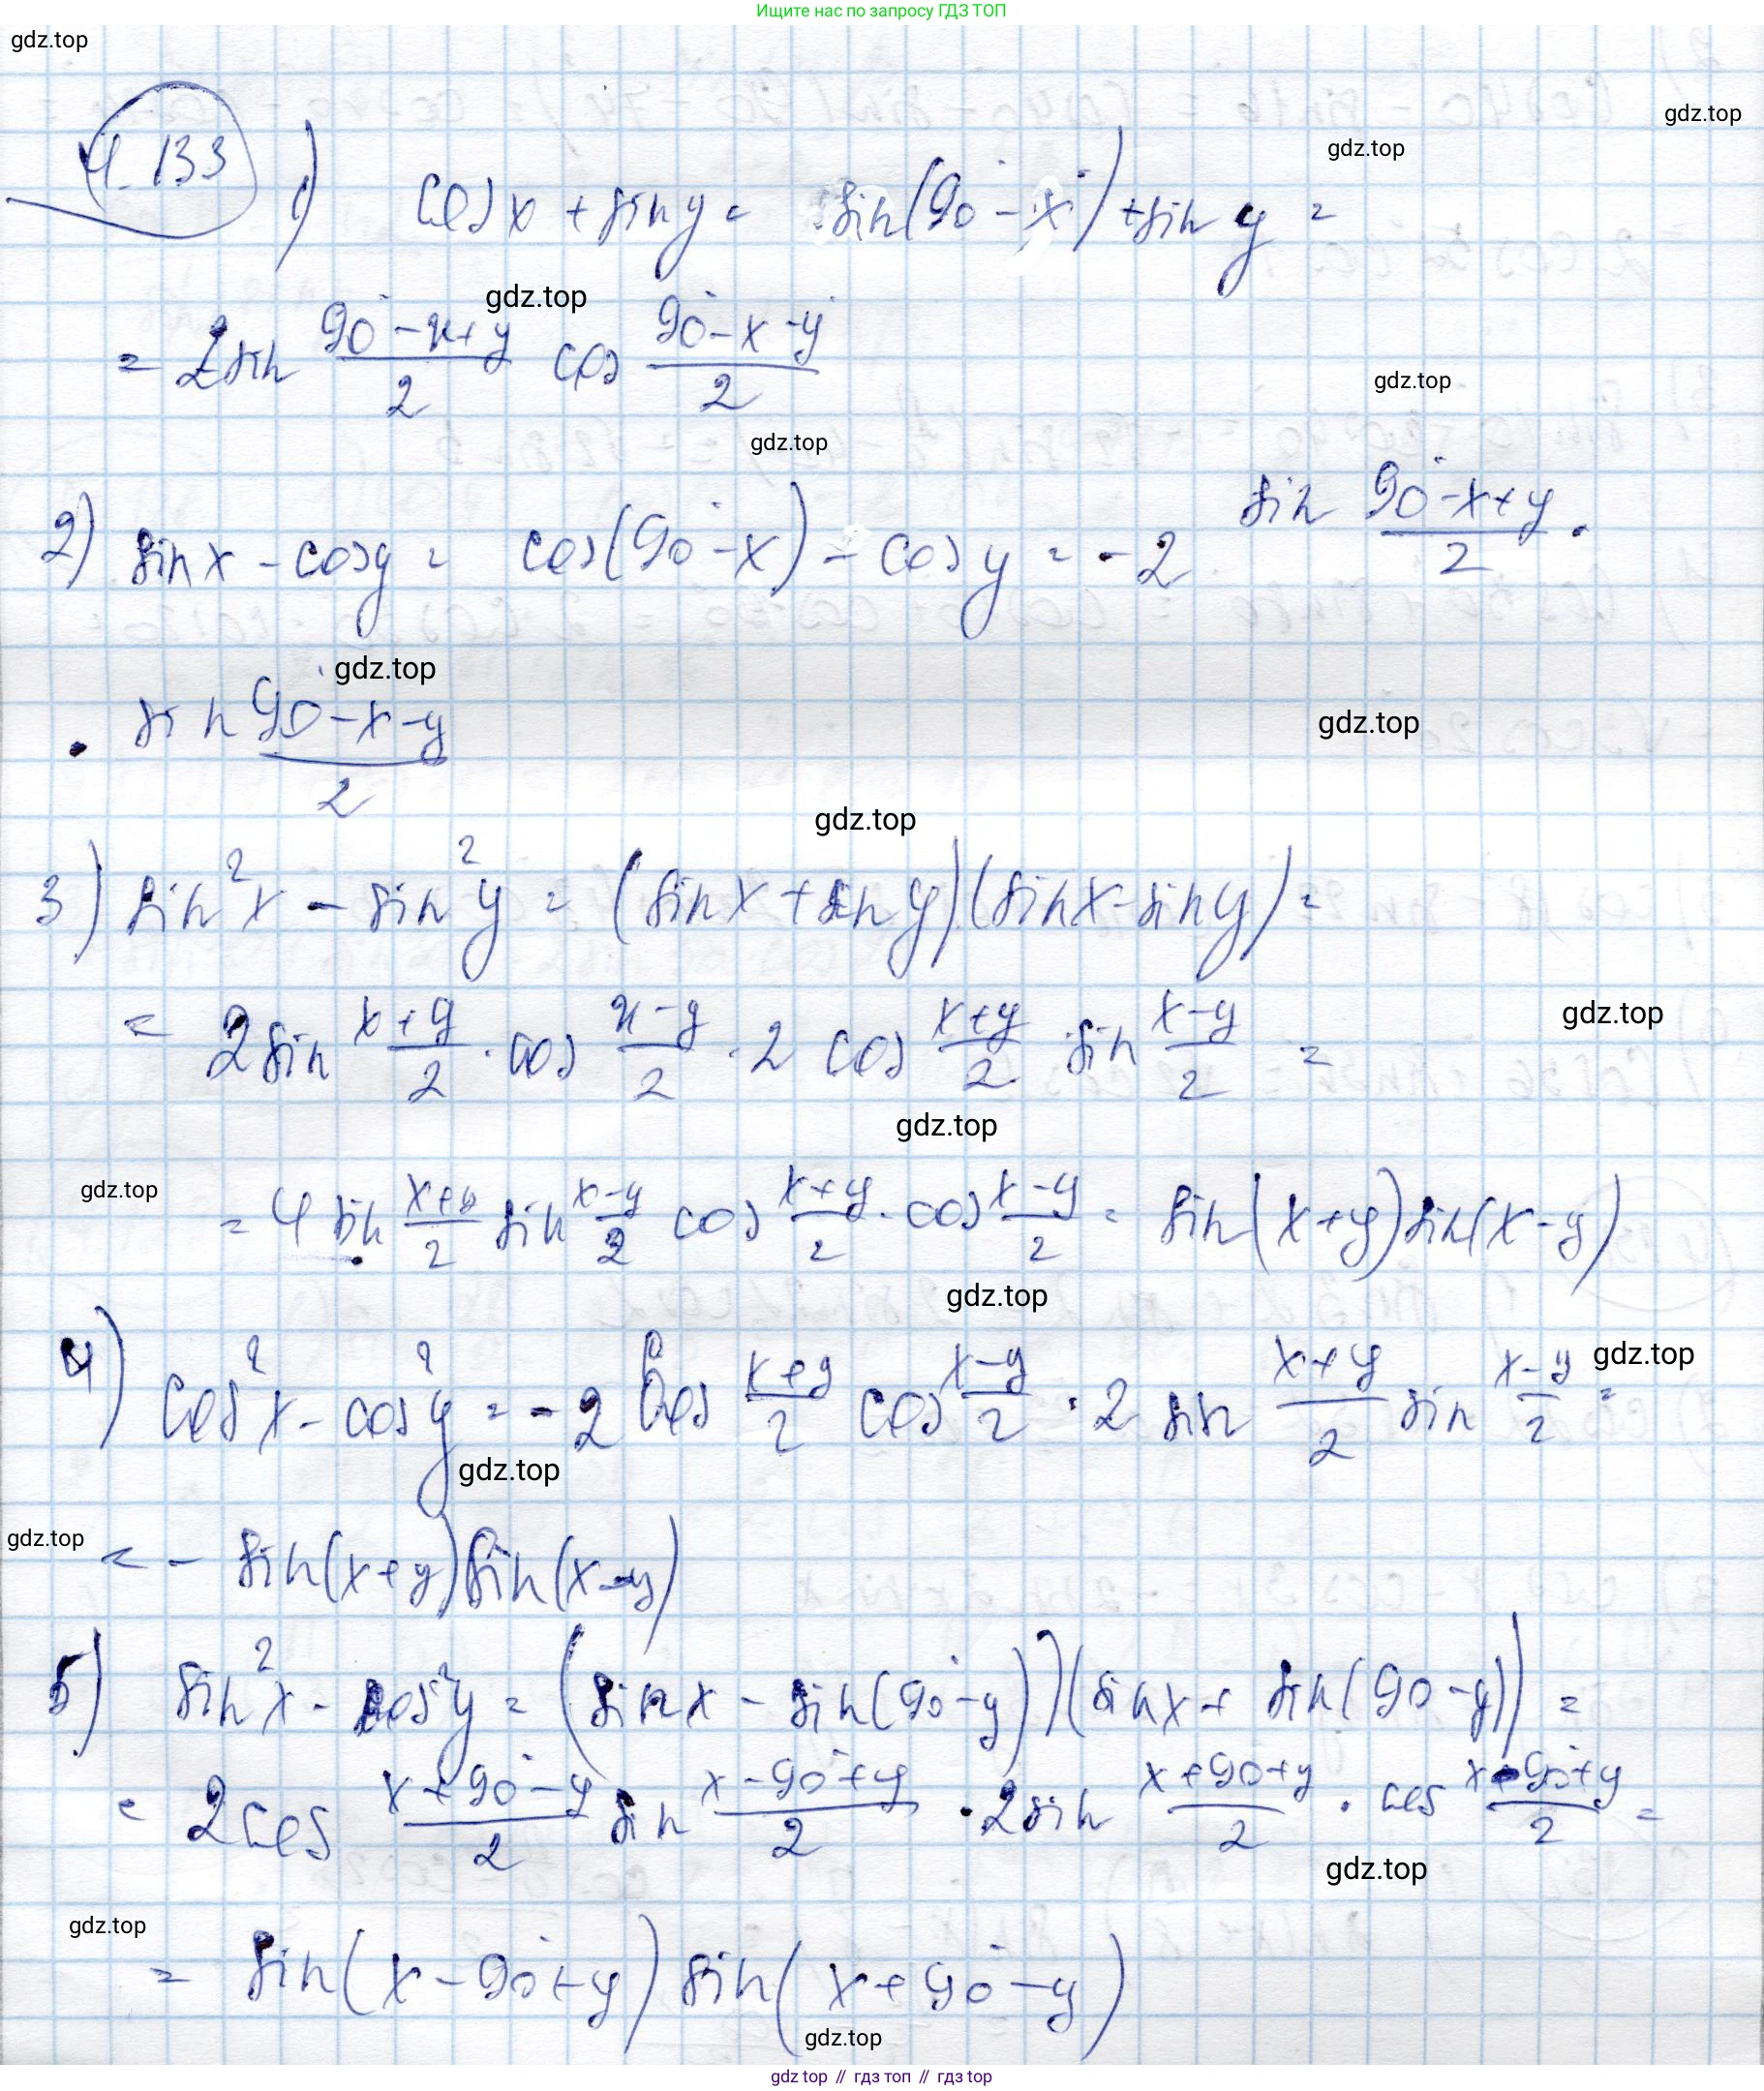 Ищите нас по запросу ГДЗ ТОП
gdz.top
gdz.top
4.133 1) cos x + sin y = sin(90° - x) + sin y =
gdz.top
gdz.top
= 2 sin (90° - x + y)/2 cos (90° - x - y)/2
gdz.top
gdz.top
2) sin x - cos y = cos(90° - x) - cos y = -2 sin (90° - x + y)/2 ·
gdz.top
· sin (90° - x - y)/2
gdz.top
gdz.top
3) sin² x - sin² y = (sin x + sin y)(sin x - sin y) =
= 2 sin (x + y)/2 · cos (x - y)/2 · 2 cos (x + y)/2 sin (x - y)/2 =
gdz.top
gdz.top
gdz.top
= 4 sin (x + y)/2 sin (x - y)/2 cos (x + y)/2 · cos (x - y)/2 = sin(x + y) sin(x - y)
gdz.top
4) cos² x - cos² y = -2 cos (x + y)/2 cos (x - y)/2 · 2 sin (x + y)/2 sin (x - y)/2 =
gdz.top
gdz.top
gdz.top
= - sin(x + y) sin(x - y)
5) sin² x - cos² y = (sin x - sin(90° - y))(sin x + sin(90 - y)) =
= 2 cos (x + 90° - y)/2 sin (x - 90° + y)/2 · 2 sin (x + 90 + y)/2 · cos (x - 90° + y)/2 =
gdz.top
gdz.top
= sin(x - 90° + y) sin(x + 90° - y)
gdz.top
gdz top // гдз топ // gdz top